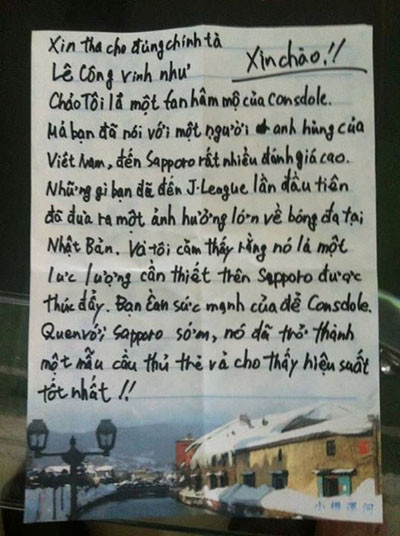 Xin tha cho đúng chính tả
Xin chào!!
Lê Công Vinh như
Chảo Tôi là một fan hâm mộ của Consdole.
Mà bạn đã nói với một người anh hùng của
Việt Nam, đến Sapporo rất nhiều đánh giá cao.
Những gì bạn đã đến J-League lần đầu tiên
đã đưa ra một ảnh hưởng lớn về bóng đá tại
Nhật Bản. Và tôi cảm thấy rằng nó là một
lực lượng cần thiết trên Sapporo được
thúc đẩy. Bạn cần sức mạnh của để Consdole.
Quen với Sapporo sớm, nó đã trở thành
một mẫu cầu thủ trẻ và cho thấy hiệu suất
tốt nhất !!
小樽運河